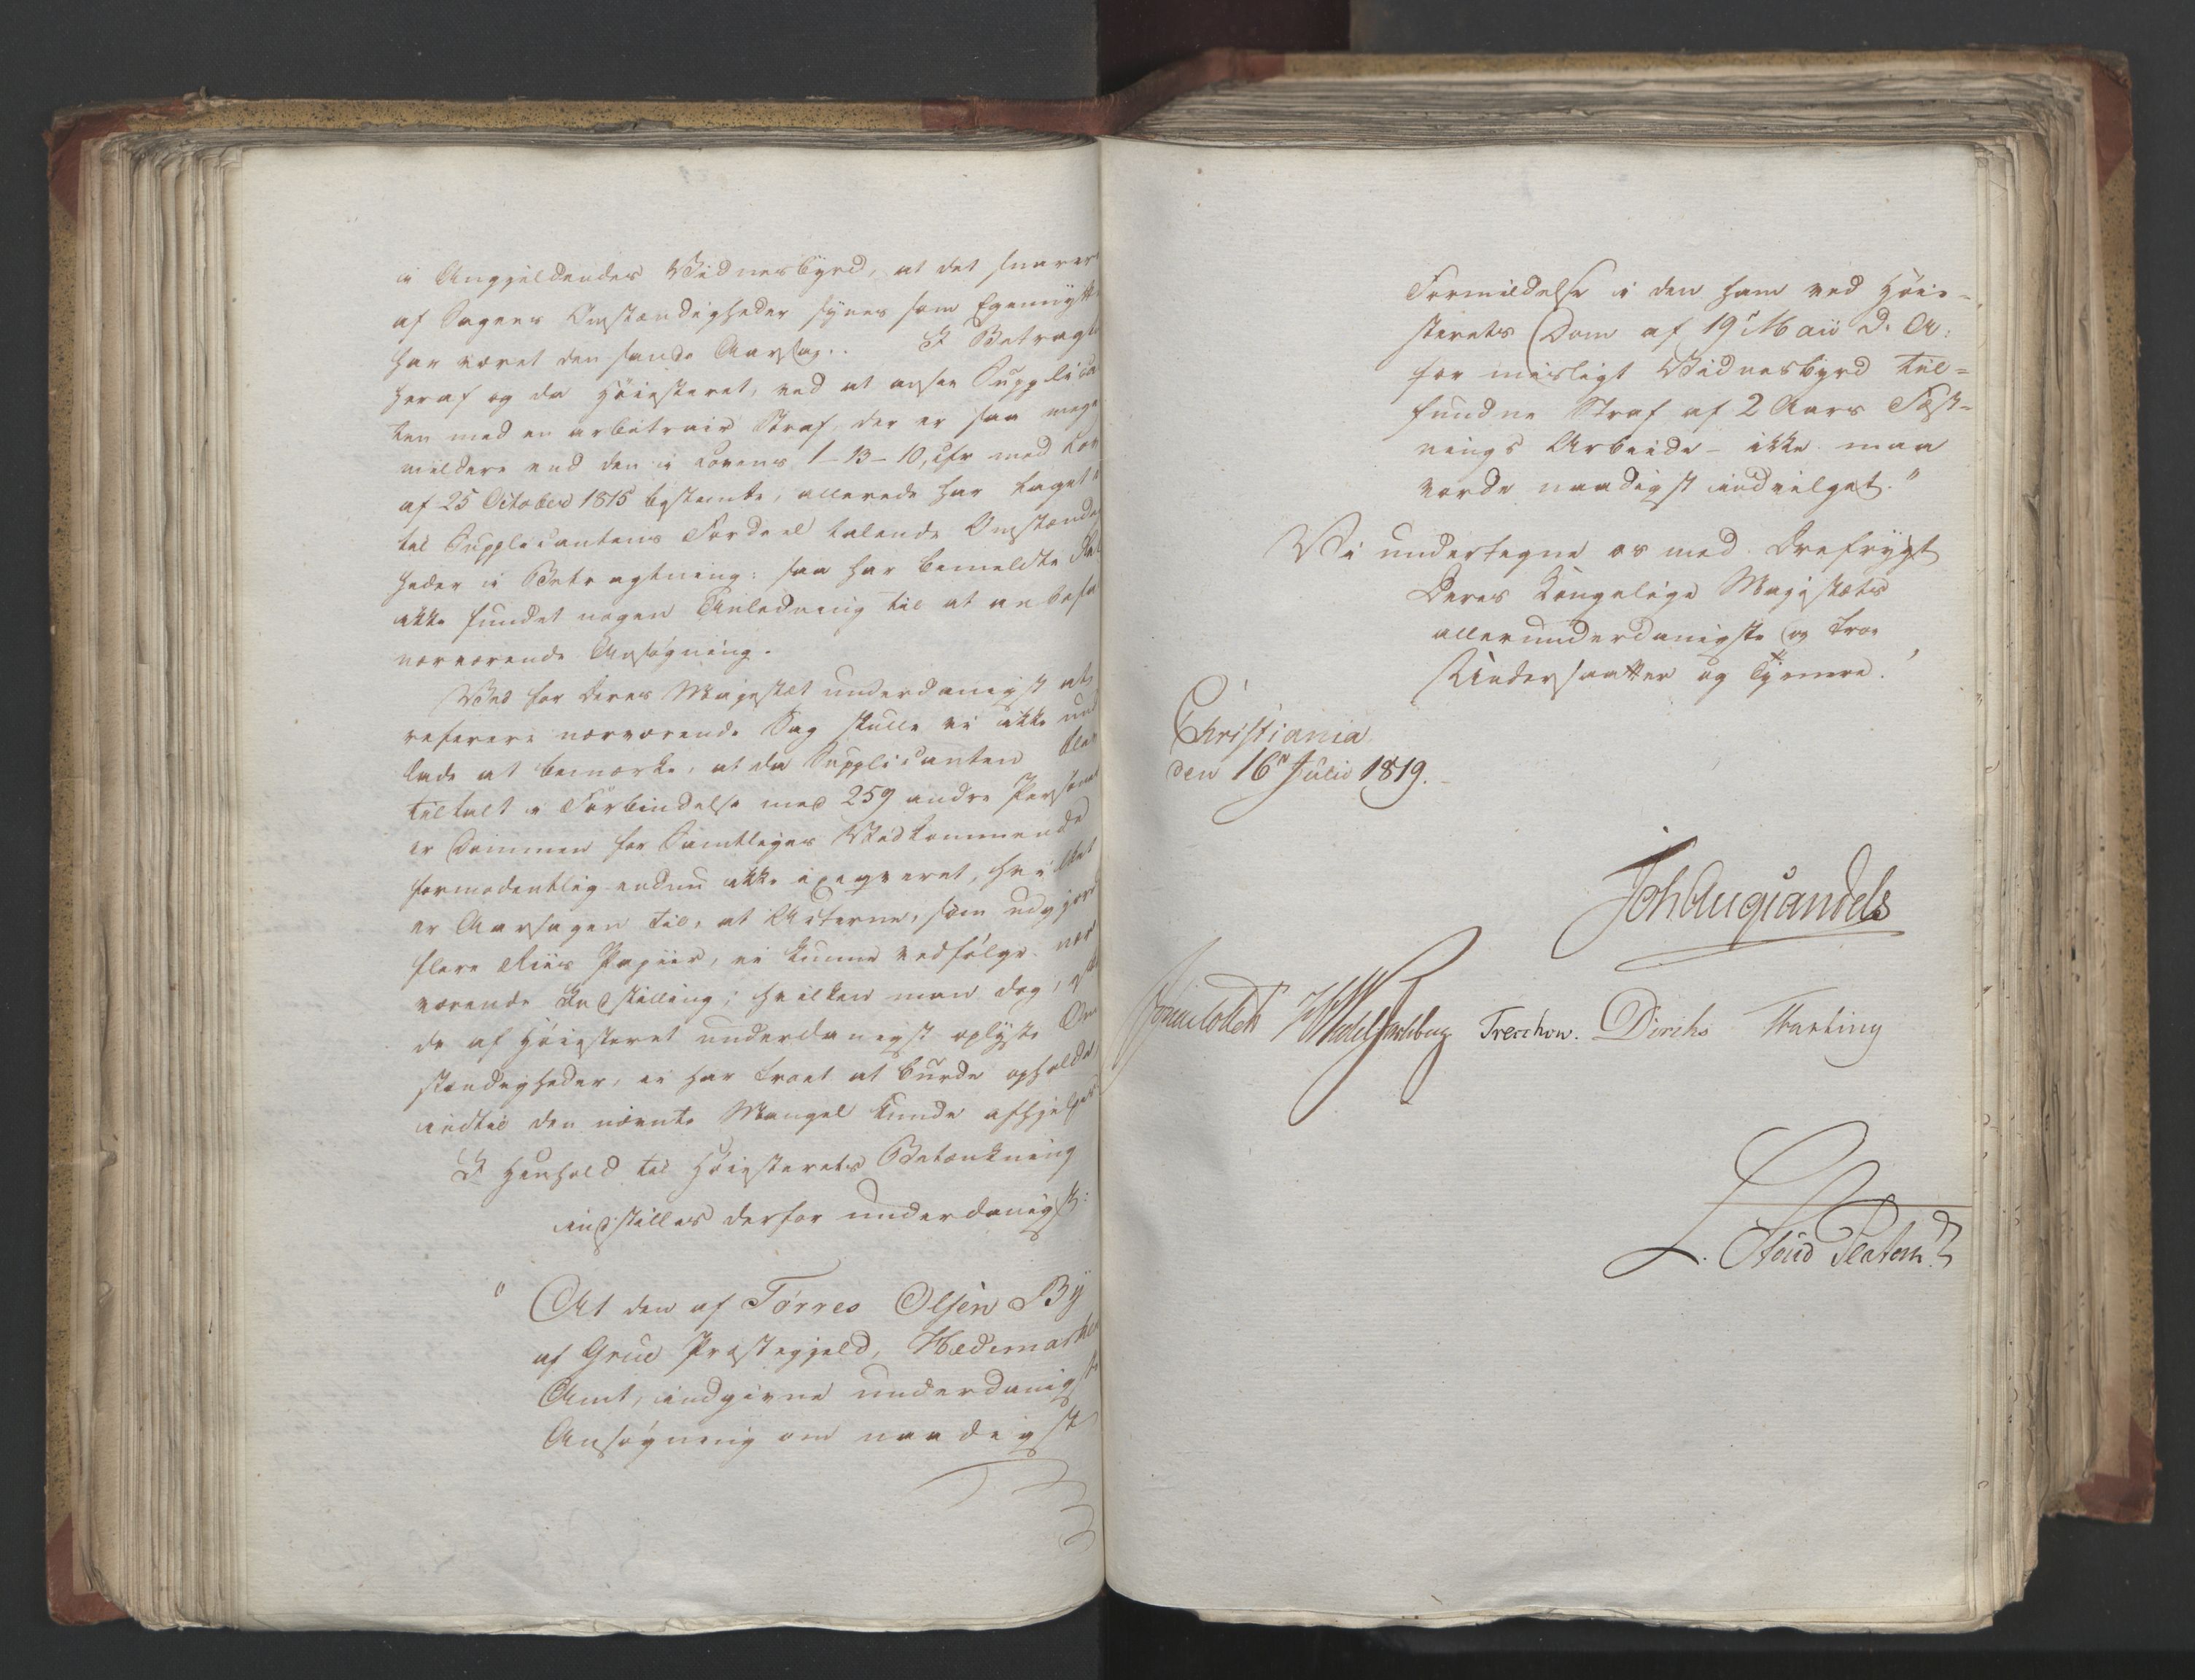 i Angjeldendes Vidnesbyrd, at det snarere
af Sagens Omstændigheder synes som Egennytte
har været den sande Aarsag. I Betragtn
heraf og da Höiesteret, ved at ansee Supplican
ten med en arbitrair Straf der er saa meget
mildere end den i Lovens 1-13-10, cfr med Lov
af 25 October 1815 bestemte, allerede har taget
til Supplicantens Fordeel talende Omstændig
heder i Betragtning: saa har bemeldte
ikke fundet nogen Anledning til at anbefa
nærværende Ansögning.
Ved for Deres Majestæt underdanigst at
referere nærværende Sag skulle vi ikke und
lade at bemærke, at da Supplicanten blev
tiltalt i Forbindelse med 259 andre Personer
er Dommen for Samtliges Vedkommende
formodentlig endnu ikke exeqveret, hvilket
er Aarsagen til, at Acterne, som udgjöre
flere Riis Papiir, ei kunne vedfölge nær
værende Indstilling; hvilken man dog,
de af Höiesteret underdanigst oplyste Om
stændigheder, ei har troet at burde opholde,
indtil den nævnte Mangel kunde afhjelpes
I Henhold til Höiesterets Betænkning
indstilles derfor underdanigst:
" At den af Törres Olsen By
af Grue Præstegjeld, Hedemarkens
Amt, indgivne underdanigste
Ansögning om naadigst
Formildelse i den ham ved Höie-
sterets Dom af 19 Maii d. A.
for misligt Vidnesbyrd til-
fundne Straf af 2 Aars Fæst-
nings Arbeide - ikke maa
vorde naadigst indvilget."
Vi undertegne os med Ærefrygt
Deres Kongelige Majestæts
allerunderdanigste og troe
Undersaatter og Tjenere.
Christiania
den 16 Julii 1819.
Joh Aug Sandels
Sommerfeldt HWedelJarlsberg Treschow. Diriks Fasting
L. Stoud Platou